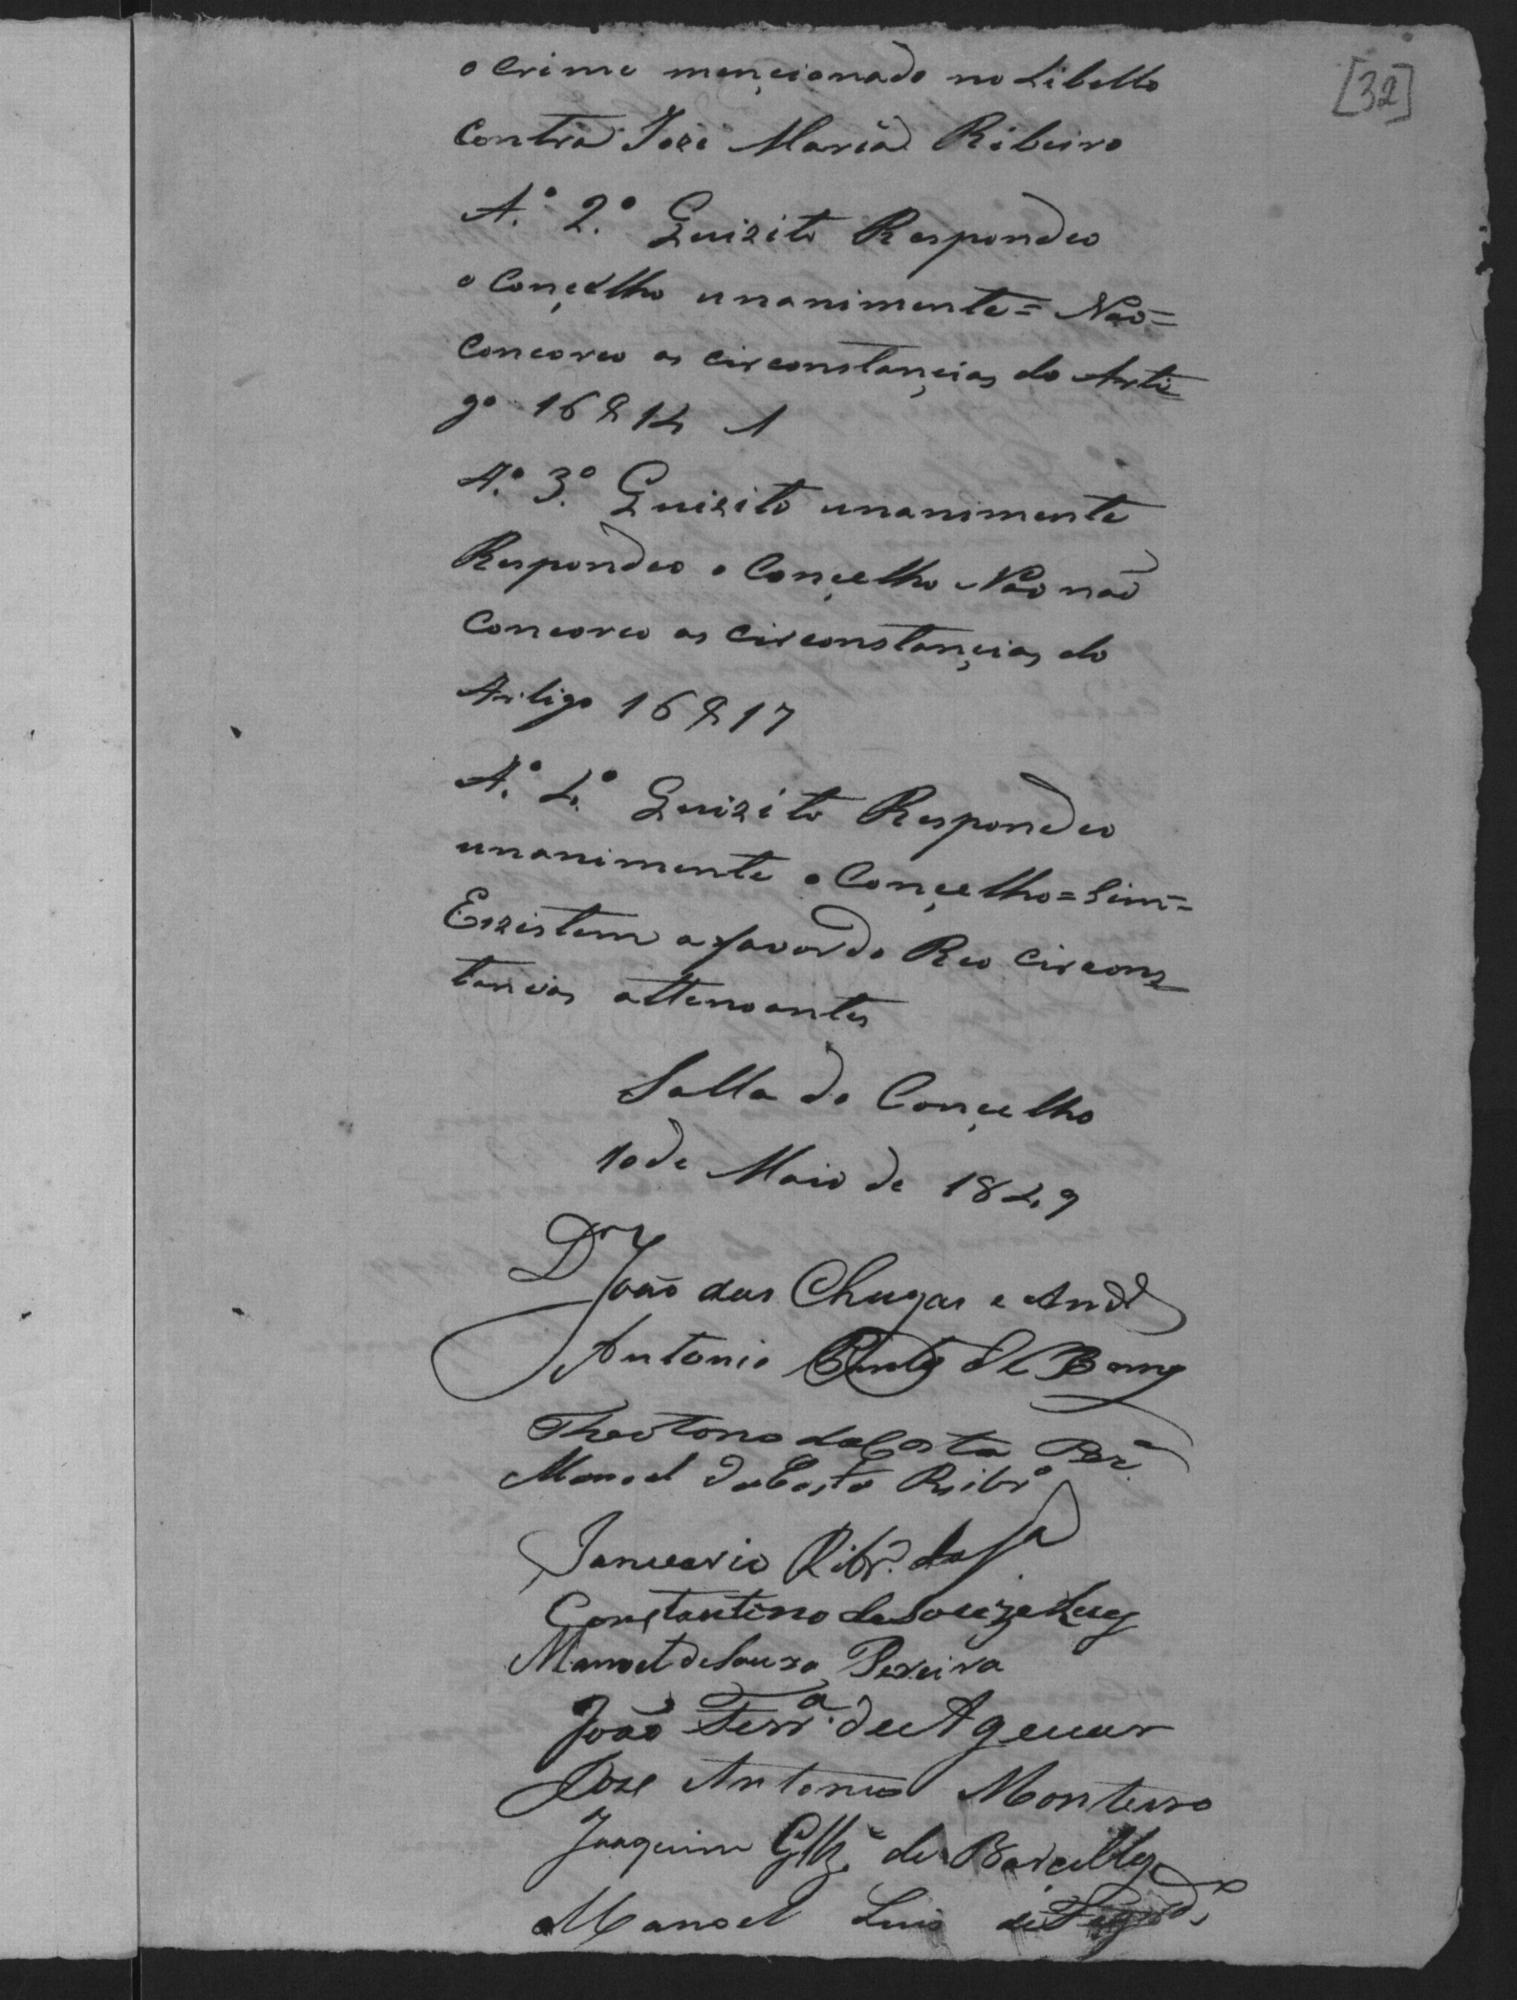 [32]
o crime mençionado no Libello
contra José Maria Ribeiro
A.º 2.º Quizito Respondeo
o Conçelho unanimente = Não =
concoreo as circonstançias do Arti
go 16 § 14 1
A.º 3.º Quizito unanimente
Respondeo o Conçelho Não não
concoreo as circonstançias do
Artigo 16 § 17
A.º 4.º Quizito Respondeo
unanimente o Conçelho = Sim =
Exzistem a favor do Reo circons
tancias attenoantes
Salla do Conçelho
10 de Maio de 1849
Dr João das Chagas e And.e
Antonio
Theotono da Costa Per.ª
Manoel da Costa Ribr.º
Januario Ribr.º da Sª
Constantino de Souza
Manoel de Souza Pereira
João Ferr.ª de Aguiar
Joze Antonio Monteiro
Joaquim Glz.' de Barcellos
Manoel Luis de